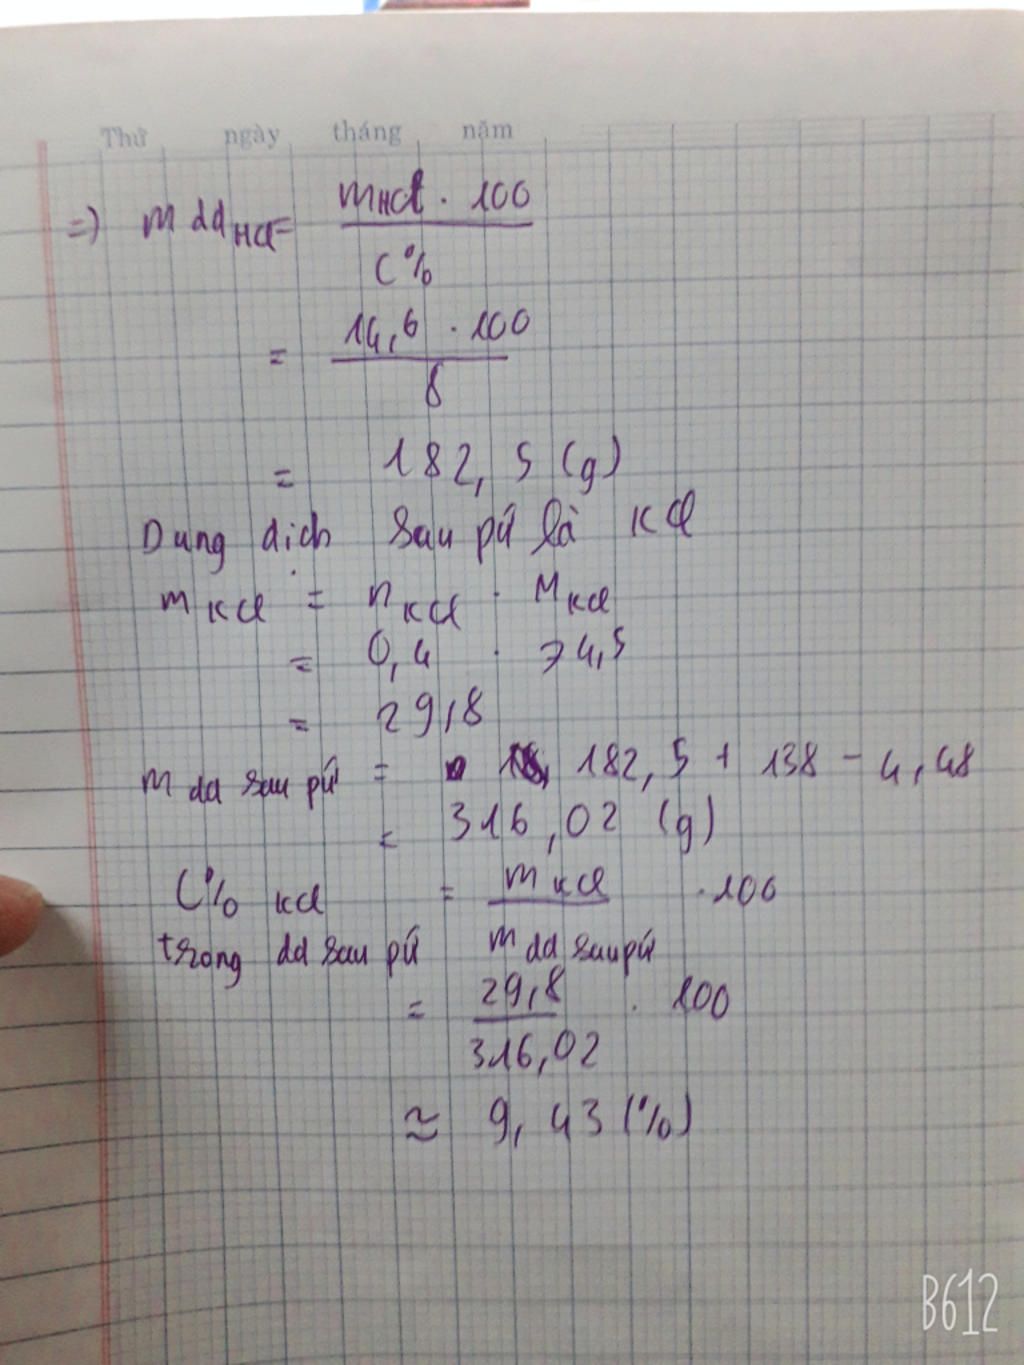 Thứ ngày tháng năm
=) m dd HCl = mHCl . 100
C%
= 14,6 . 100
8
= 182,5 (g)
Dung dịch sau pứ là KCl
m KCl = n KCl . M KCl
= 0,4 . 74,5
= 29,8
m dd sau pứ = 182,5 + 138 - 4,48
= 316,02 (g)
C% KCl = m KCl . 100
trong dd sau pứ m dd sau pứ
= 29,8 . 100
316,02
≈ 9,43 (%)
B612